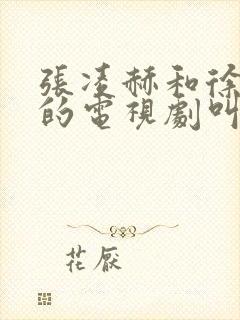 張凌赫和徐
的電視劇叫
花厭